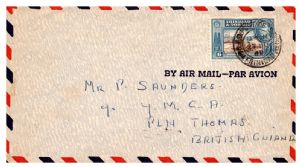 TRINIDAD & TOBAGO
6
BY AIR MAIL—PAR AVION
Mr P. SAUNDERS.
Y. M. C. A.
PLN THOMAS.
BRITISH GUIANA